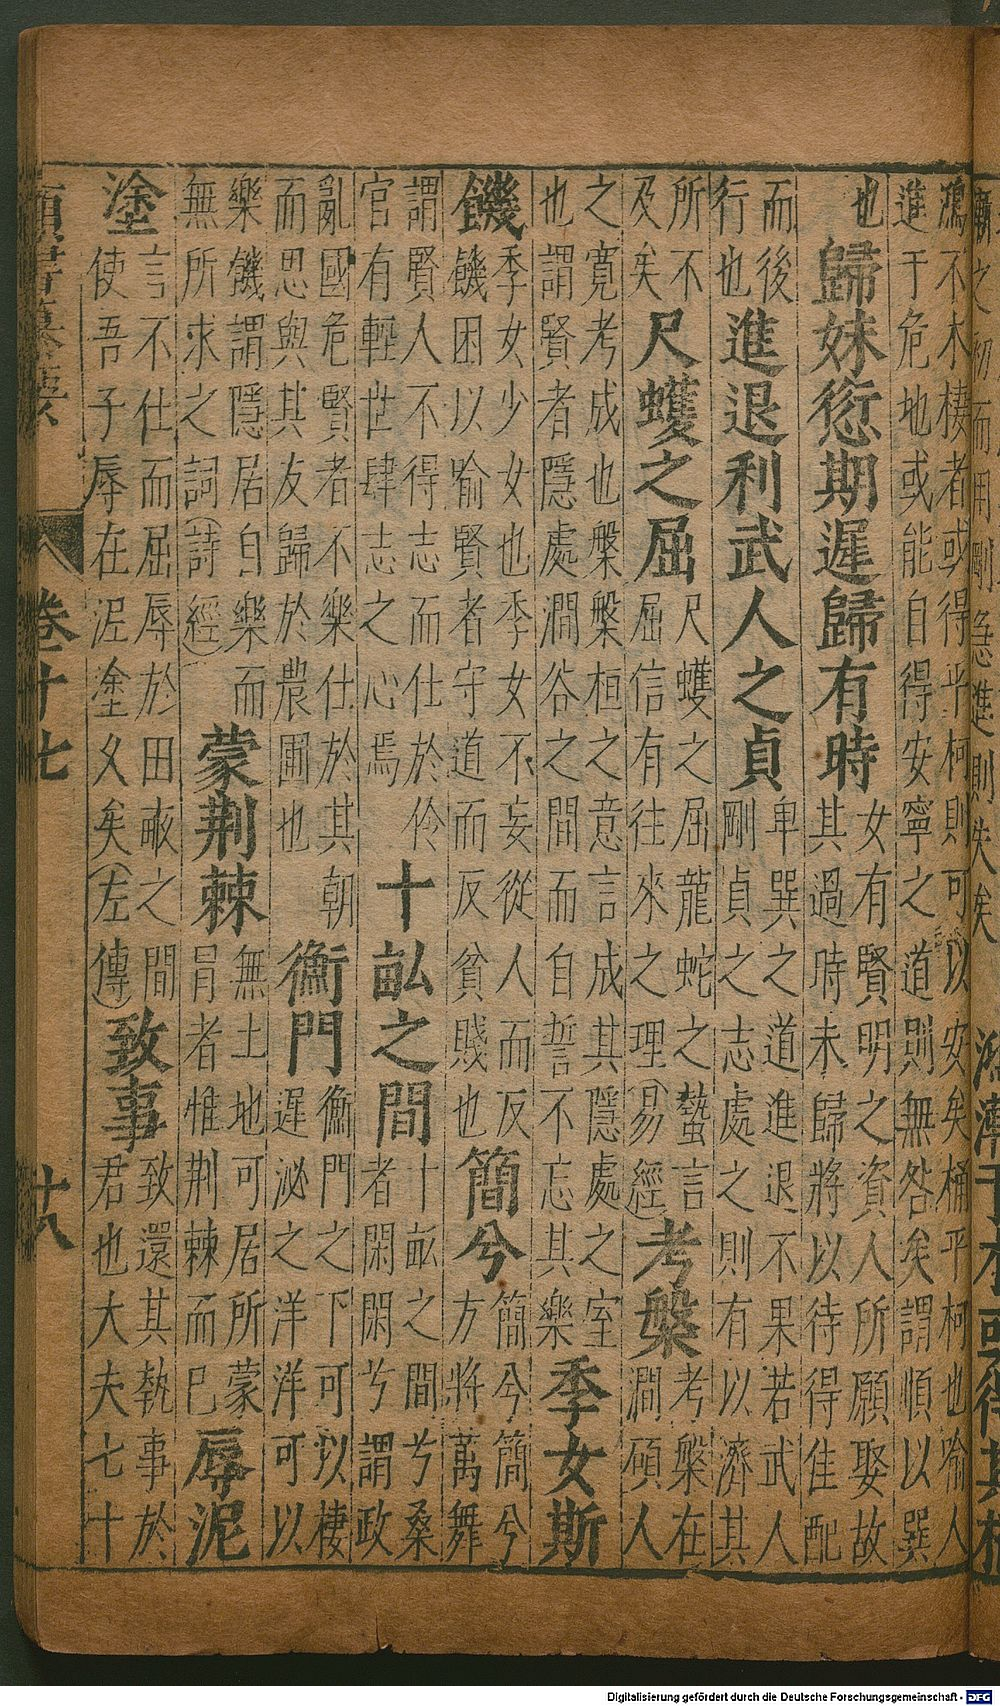 漸之初而用剛急進則失矣 鴻漸于木或得其桷
鴻不木棲者或得平柯則可以安矣桷平柯也喻人
進于危地或能自得安寧之道則無咎矣謂順以巽
也 歸妹愆期遲歸有時 女有賢明之資人所願娶故其過時未歸將以待得佳配
而後行也 進退利武人之貞 卑巽之道進退不果若武人剛貞之志處之則有以濟其
所不及矣 尺蠖之屈 尺蠖之屈龍蛇之蟄言屈信有往來之理(易經) 考槃 考槃在澗碩人
之寬考成也槃槃桓之意言成其隱處之室也謂賢者隱處澗谷之間而自誓不忘其樂 季女斯
饑 季女少女也季女不妄從人而反饑困以喻賢者守道而反貧賤也 簡兮 簡兮簡兮方將萬舞
謂賢人不得志而仕於伶官有輕世肆志之心焉 十畝之間 十畝之間兮桑者閑閑兮謂政
亂國危賢者不樂仕於其朝而思與其友歸於農圃也 衡門 衡門之下可以棲遲泌之洋洋可以
樂饑謂隱居自樂而無所求之詞(詩經) 蒙荊棘 無土地可居所蒙冐者惟荊棘而已 辱泥
塗 言不仕而屈辱於田畝之間使吾子辱在泥塗久矣(左傳) 致事 致還其執事於君也大夫七十
類書纂要 卷十七 十八
Digitalisierung gefördert durch die Deutsche Forschungsgemeinschaft - DFG